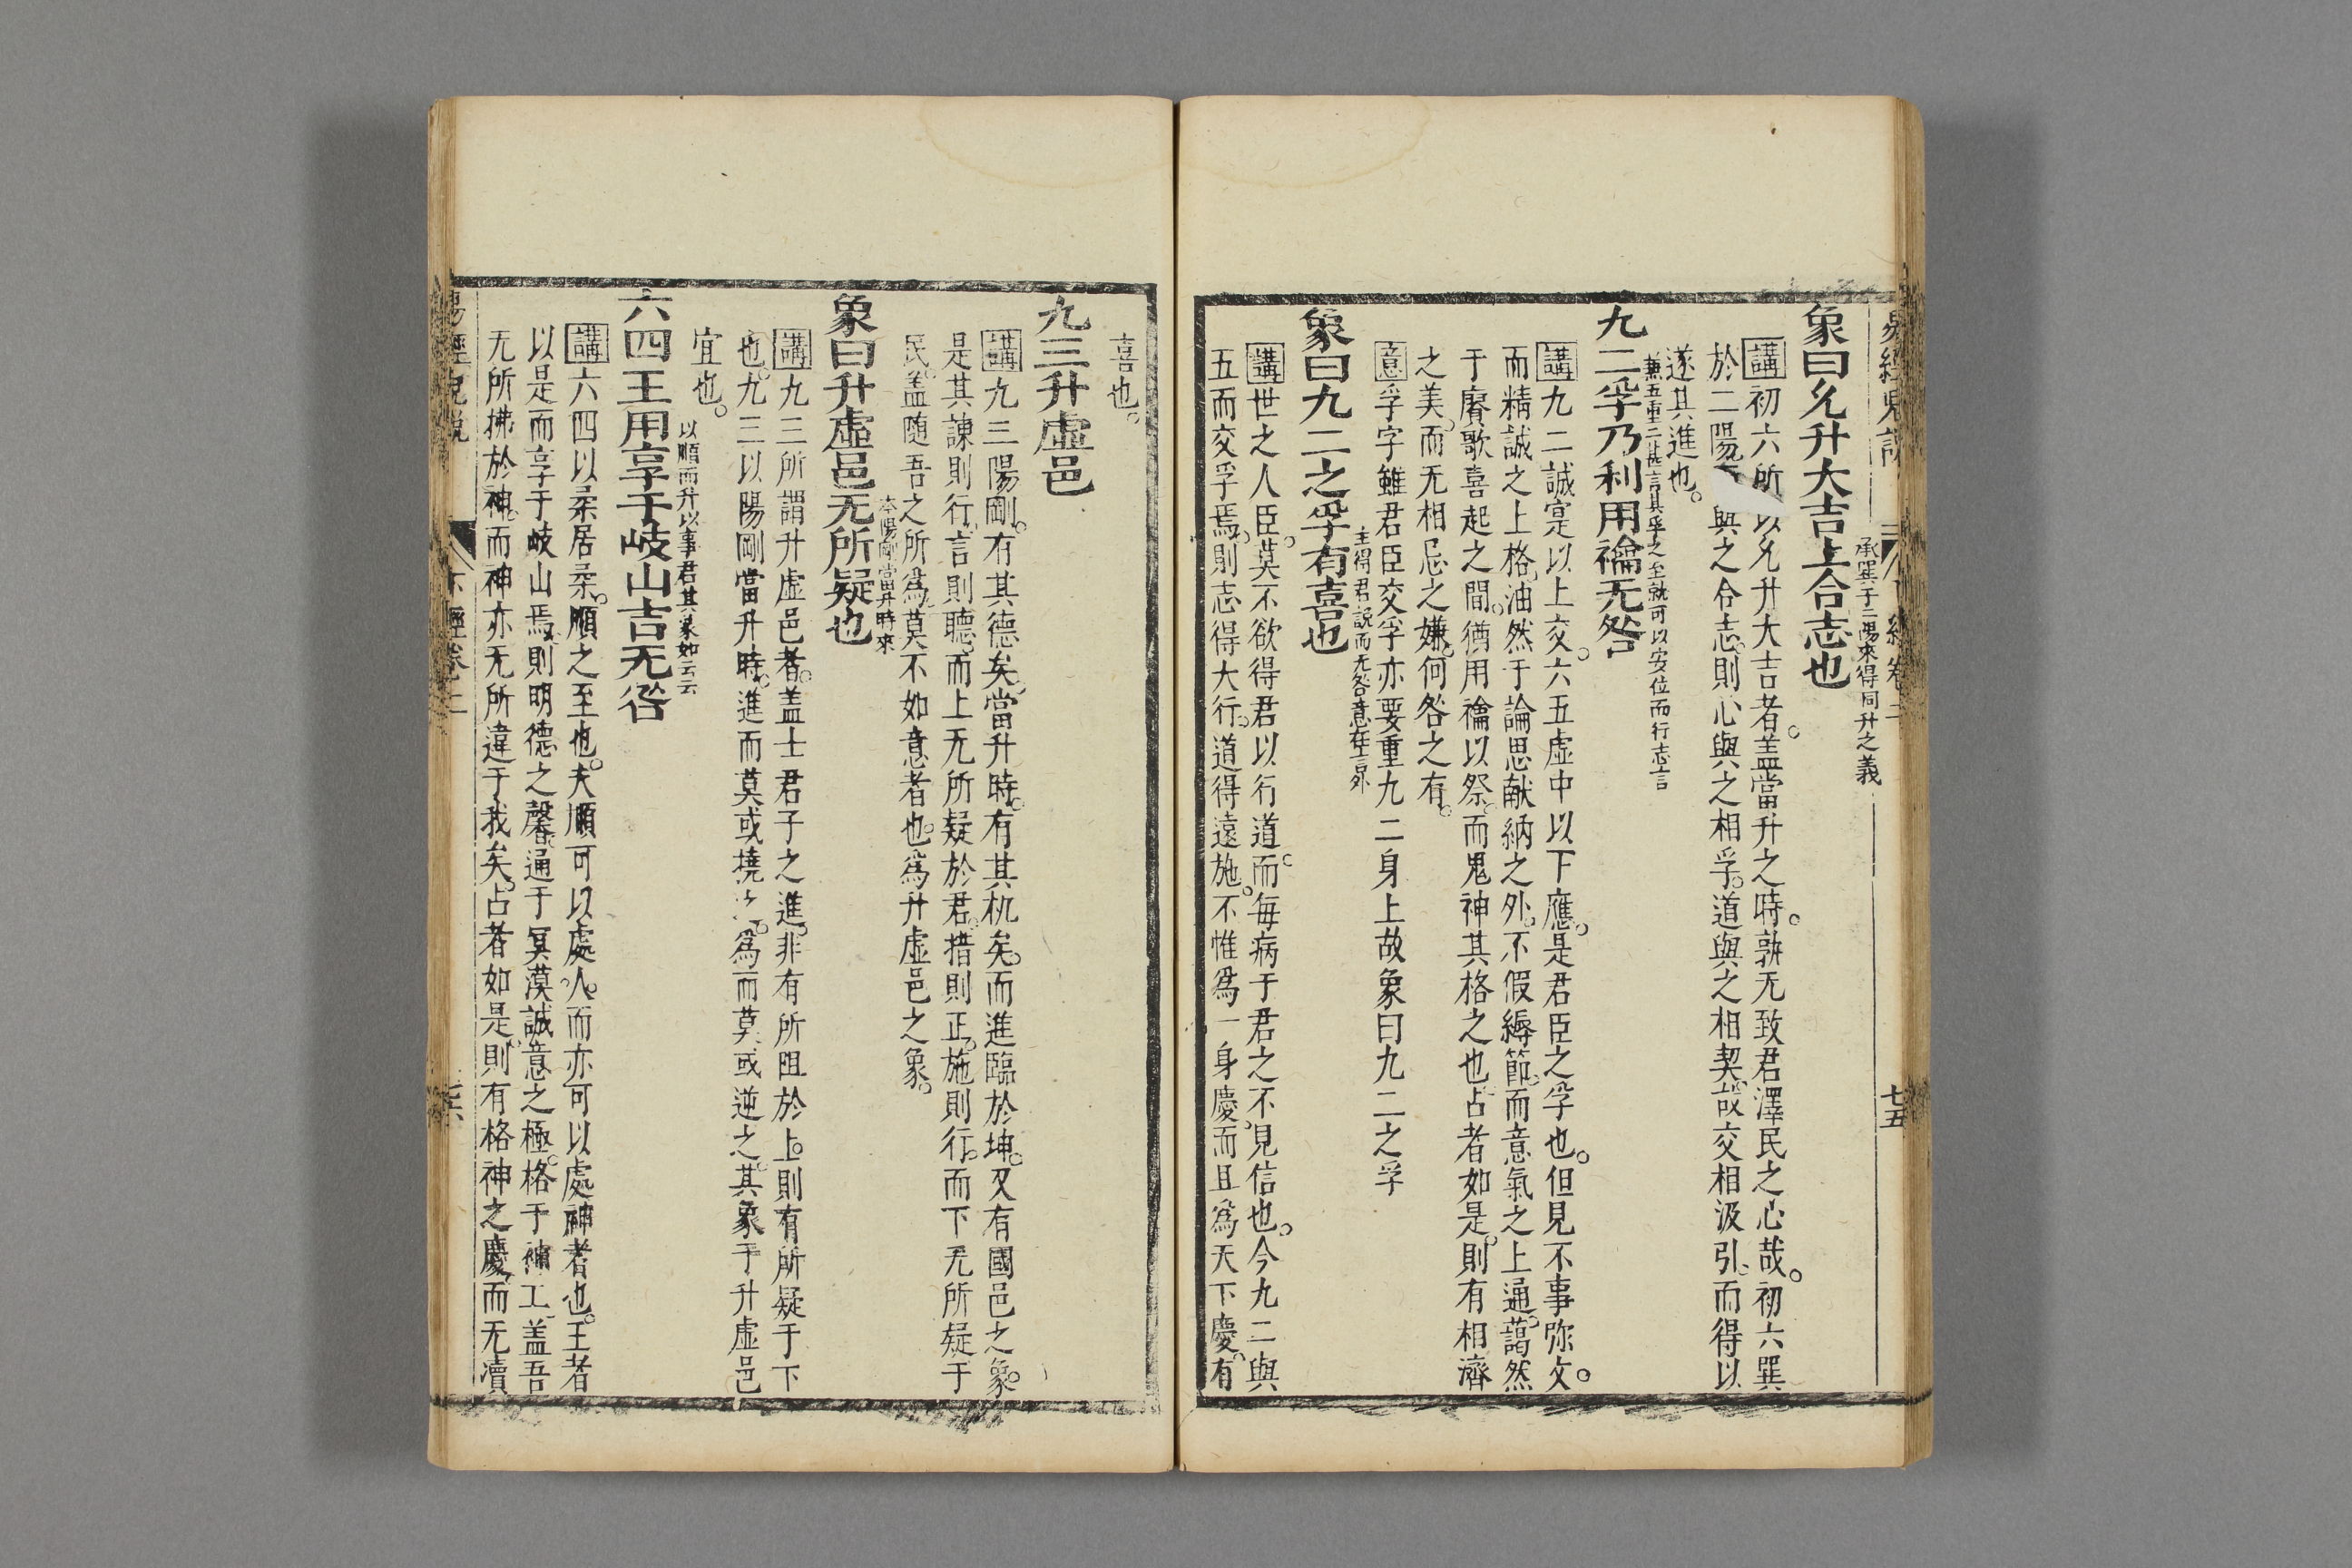 承巽于二陽來得同升之義
象曰允升大吉上合志也
講初六所以允升大吉者盖當升之時孰无致君澤民之心哉初六巽
於二陽與之合志則心與之相孚道與之相契故交相汲引而得以
遂其進也
兼五重二甚言其孚之至就可以安位而行志言
九二孚乃利用禴无咎
講九二誠寔以上交六五虛中以下應是君臣之孚也但見不事弥文
而精誠之上格油然于論思献納之外不假縟節而意氣之上通藹然
于賡歌喜起之間猶用禴以祭而鬼神其格之也占者如是則有相濟
之美而无相忌之嫌何咎之有
意孚字雖君臣交孚亦要重九二身上故象曰九二之孚
主得君說而无咎意在言外
象曰九二之孚有喜也
講世之人臣莫不欲得君以行道而每病于君之不見信也今九二與
五而交孚焉則志得大行道得遠施不惟為一身慶而且為天下慶有
喜也
九三升虛邑
講九三陽剛有其德矣當升時有其机矣而進臨於坤又有國邑之象
是其諫則行言則聽而上无所疑於君措則正施則行而下无所疑于
民盖随吾之所為莫不如意者也為升虛邑之象
本陽剛當升時來
象曰升虛邑无所疑也
講九三所謂升虛邑者盖士君子之進非有所阻於上則有所疑于下
也九三以陽剛當升時進而莫或撓之為而莫或逆之其象于升虛邑
宜也
以順而升以事君其象如云云
六四王用享于岐山吉无咎
講六四以柔居柔順之至也夫順可以處人而亦可以處神者也王者
以是而享于岐山焉則明德之馨通于冥漠誠意之極格于神工盖吾
无所拂於神而神亦无所違于我矣占者如是則有格神之慶而无凟